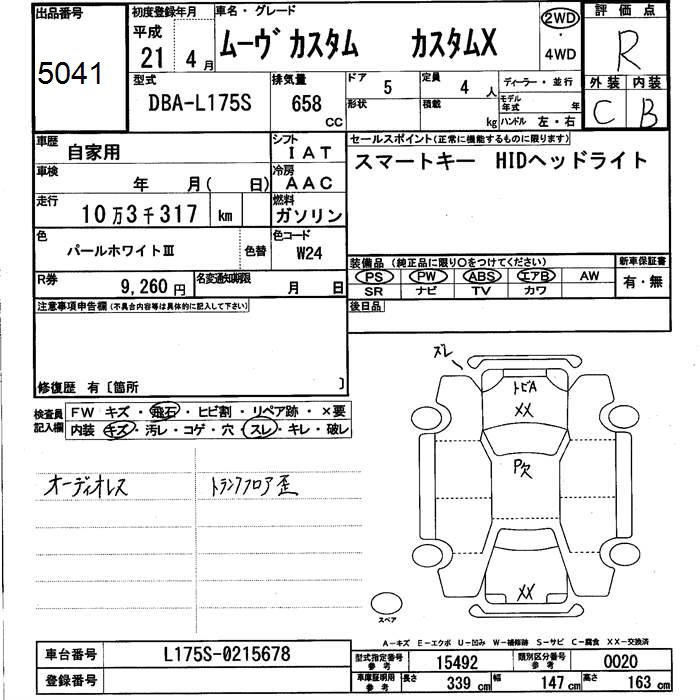 出品番号 初度登録年月 車名・グレード 評価点
5041 平成 21年 4月 ムーヴ カスタム カスタムX 2WD・4WD R
型式 DBA-L175S 排気量 658 CC ドア 5 定員 4 人 ディーラー・並行 外装 内装
形状 積載 kg モデル年式 年 ハンドル 左・右 C B
車歴 自家用 シフト IAT セールスポイント(正常に機能するものに限ります)
車検 年 月( 日) 冷房 AAC スマートキー HIDヘッドライト
走行 10万3千317 km 燃料 ガソリン
色 パールホワイトⅢ 色替 色コード W24
装備品(純正品に限り○をつけてください) 新車保証書
PS PW ABS エアB AW 有・無
SR ナビ TV カワ
R券 9,260円 名変通知期限 月 日
注意事項申告欄(不具合内容等は具体的に記入して下さい) 後日品
修復歴 有〔箇所 〕
検査員記入欄 FW キズ・飛石・ヒビ割・リペア跡・×要
内装 キズ・汚レ・コゲ・穴・スレ・キレ・破レ
オーディオレス トランクフロア歪
ズレ
トビA
XX
P欠
XX
スペア
A-キズ E-エクボ U-凹み W-補修跡 S-サビ C-腐食 XX-交換済
車台番号 L175S-0215678 型式指定番号 参考 15492 類別区分番号 参考 0020
登録番号 車庫証明用 参考 長さ 339 cm 幅 147 cm 高さ 163 cm